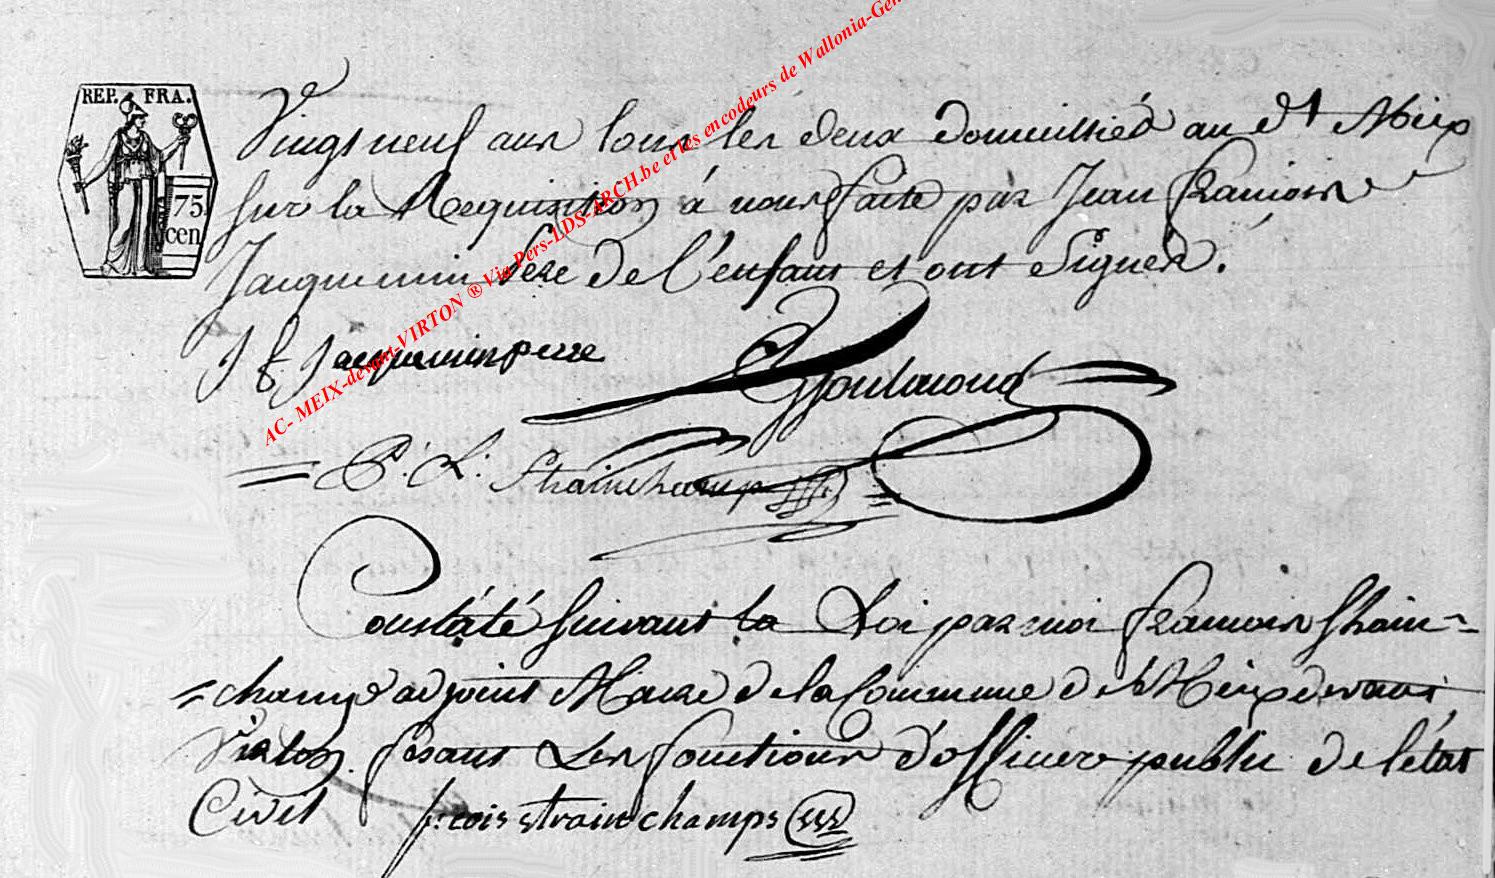 REP. FRA.
75
cen
AC- MEIX-devant-VIRTON ® Via Pers-LDS-ARCH.be et les encodeurs de Wallonia-Gen
Vingt neuf ans tous les deux domicilliés au dt Meix
sur la Requisition à nous faite par Jean françois
Jacquemin Pere de l'enfant et ont Signés.
J f Jacquemin pere
Goulmond
= P. L. Strainchamp
Constaté suivant la Loi par moi françois Strain=
=champs adjoint Maire de la Commune de Meix devant
Virton fesant Les fonctions d'officier public de l'état
Civil f:cois strainchamps